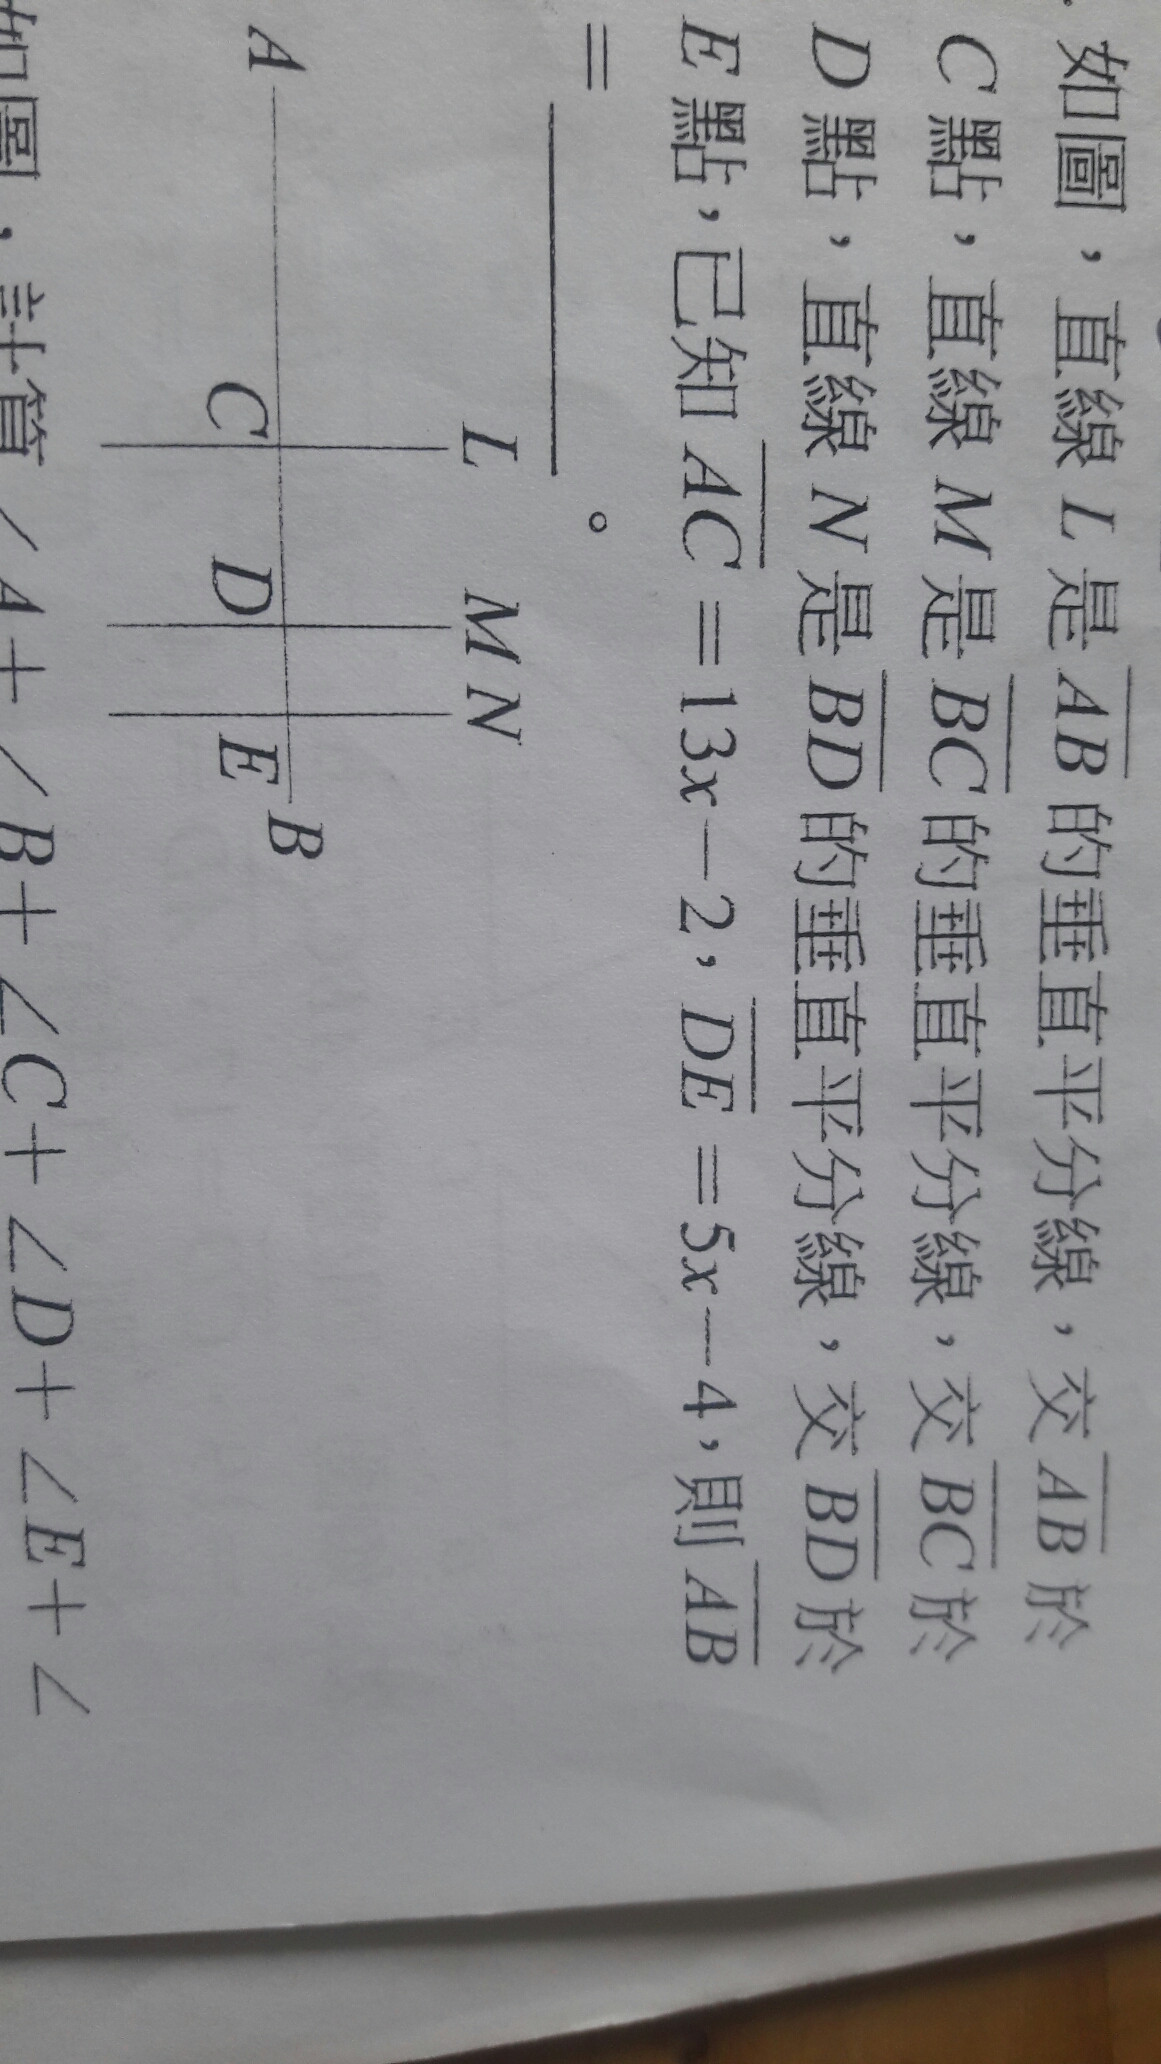 如圖，直線 L 是 AB 的垂直平分線，交 AB 於
C 點，直線 M 是 BC 的垂直平分線，交 BC 於
D 點，直線 N 是 BD 的垂直平分線，交 BD 於
E 點，已知 AC = 13x－2，DE = 5x－4，則 AB
= ＿＿＿＿。
L M N
A C D E B
如圖，計算∠A+∠B+∠C+∠D+∠E+∠